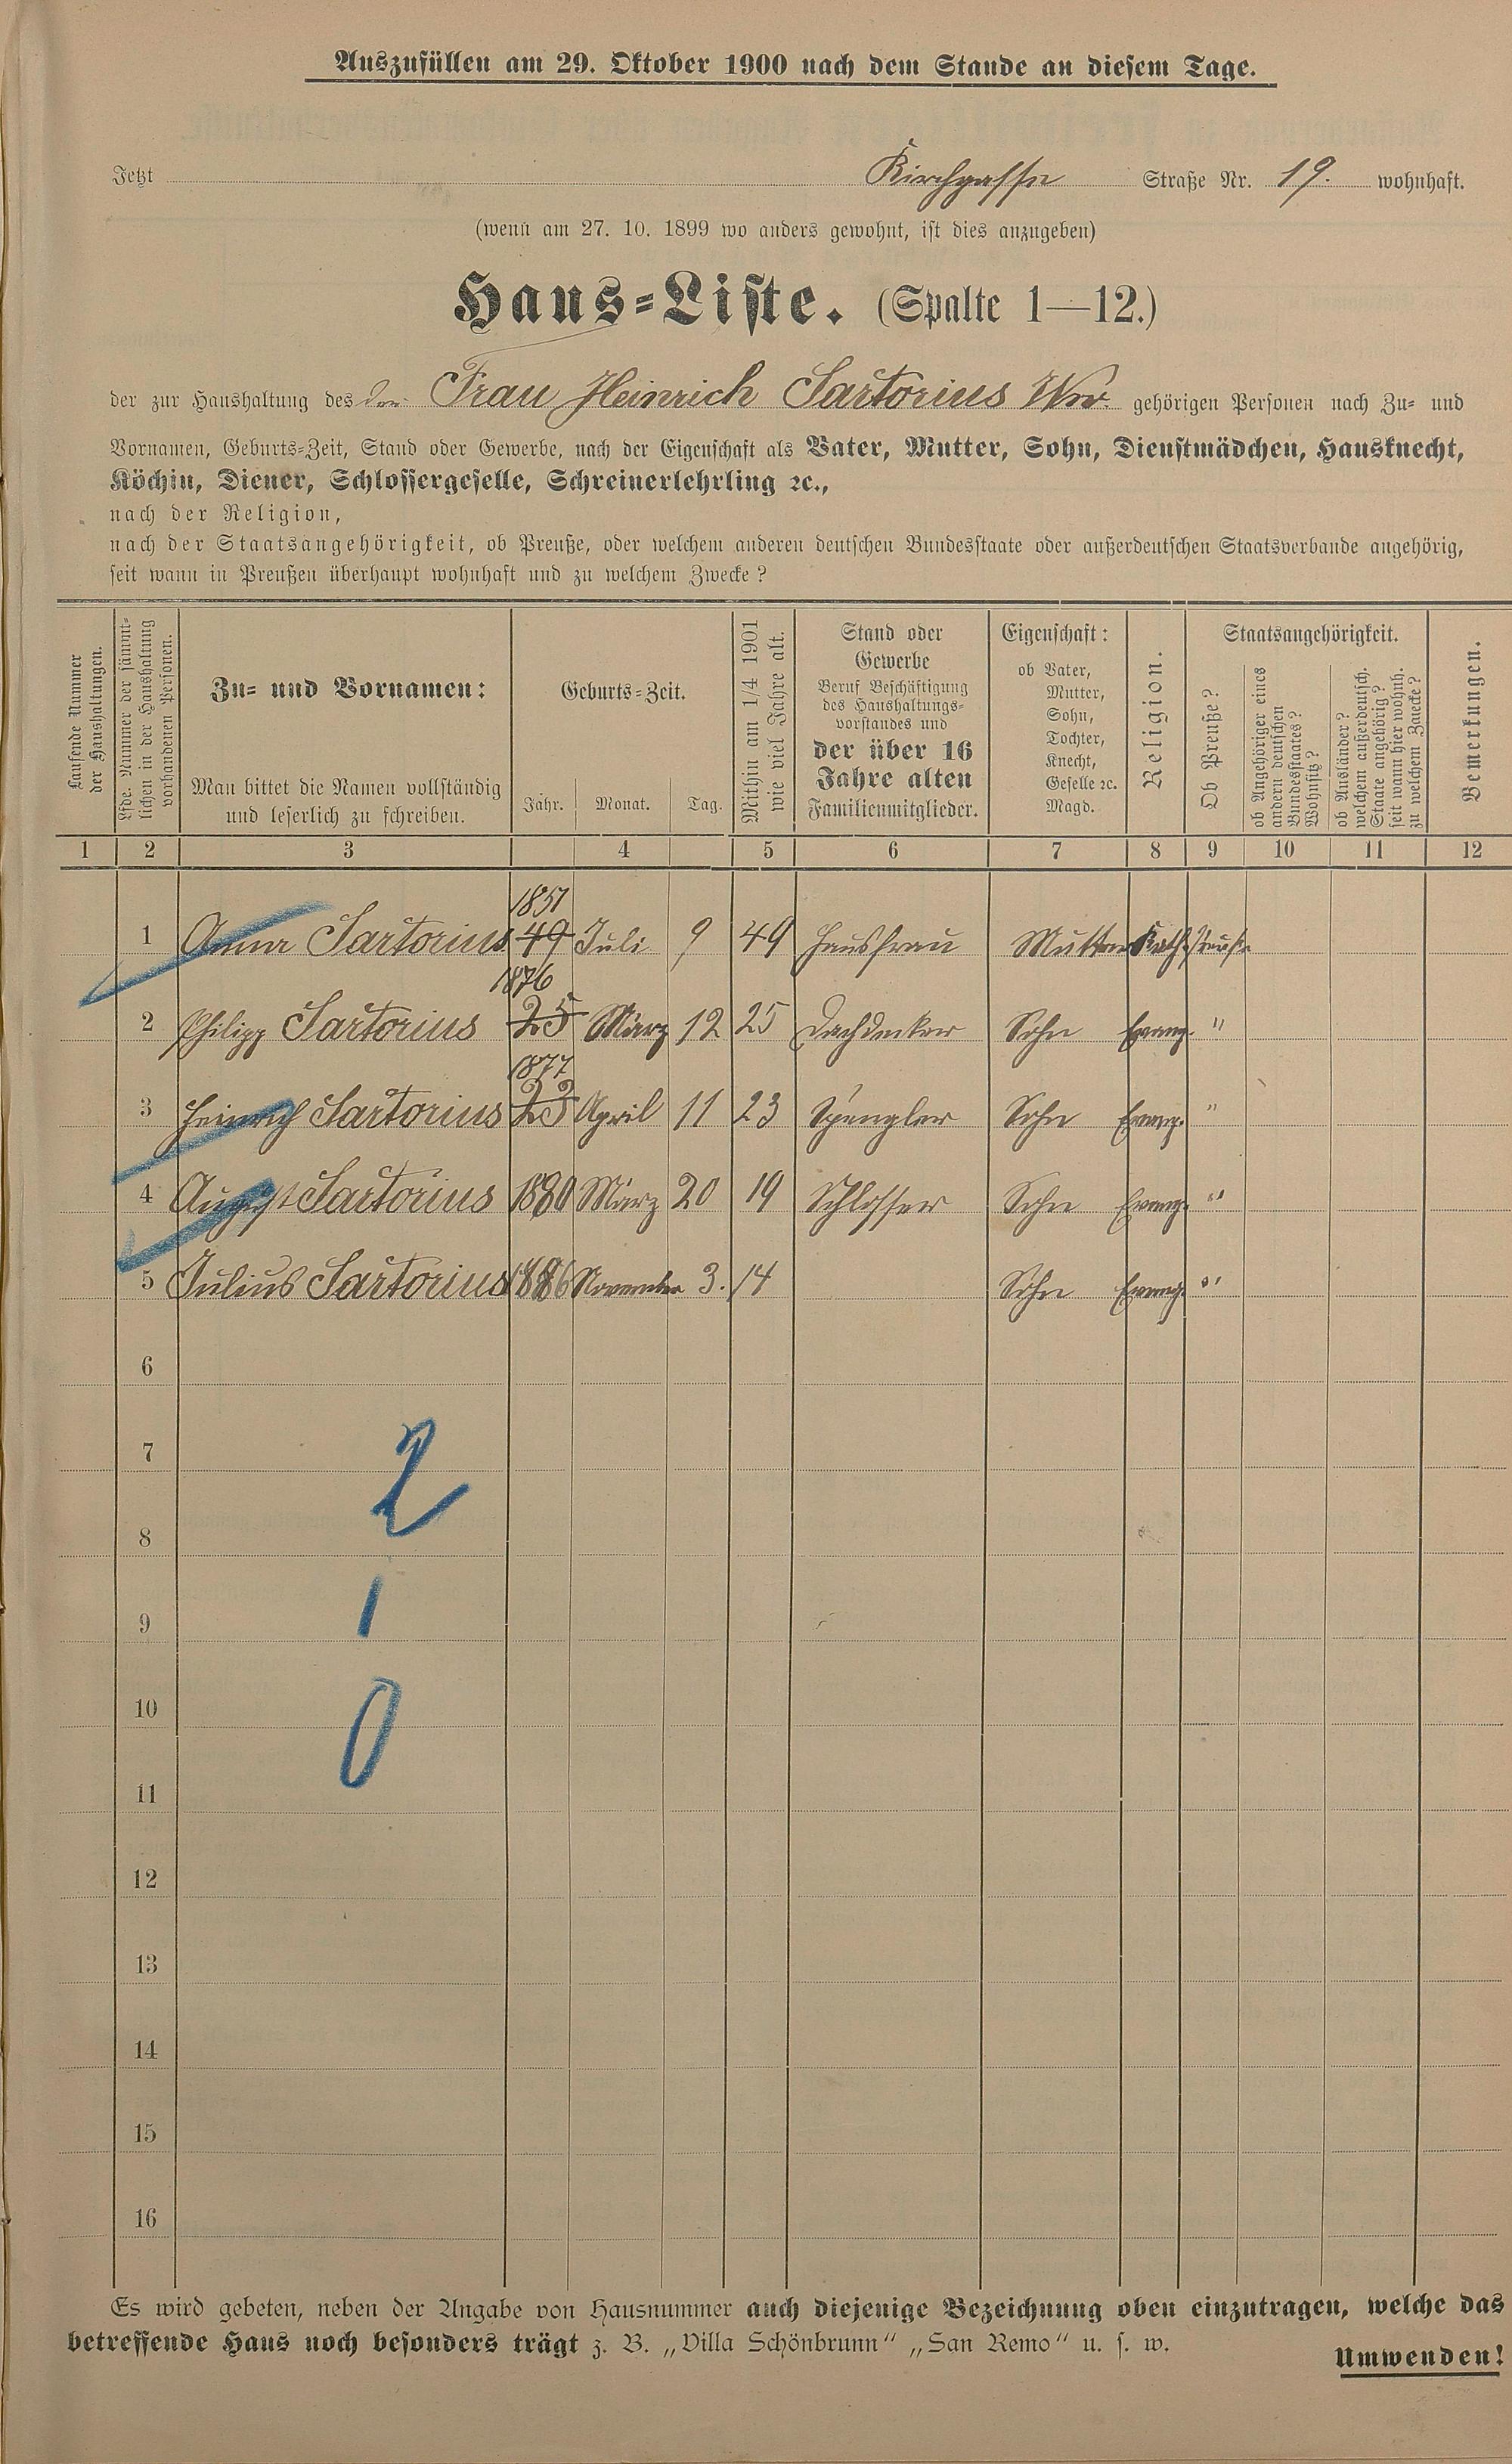 Auszufüllen am 29. Oktober 1900 nach dem Stande an diesem Tage.
Jetzt Kirchgasse Straße Nr. 19. wohnhaft.
(wenn am 27. 10. 1899 wo anders gewohnt, ist dies anzugeben)
Haus-Liste. (Spalte 1—12.)
der zur Haushaltung des der Frau Heinrich Sartorius Ww. gehörigen Personen nach Zu- und
Vornamen, Geburts-Zeit, Stand oder Gewerbe, nach der Eigenschaft als Vater, Mutter, Sohn, Dienstmädchen, Hausknecht,
Köchin, Diener, Schlossergeselle, Schreinerlehrling ꝛc.,
nach der Religion,
nach der Staatsangehörigkeit, ob Preuße, oder welchem anderen deutschen Bundesstaate oder außerdeutschen Staatsverbande angehörig,
seit wann in Preußen überhaupt wohnhaft und zu welchem Zwecke?
Laufende Nummer
der Haushaltungen.
Lfde. Nummer der sämmt-
lichen in der Haushaltung
vorhandenen Personen.
Zu- und Vornamen:
Man bittet die Namen vollständig
und leserlich zu schreiben.
Geburts-Zeit.
Jahr. Monat. Tag.
Mithin am 1/4 1901
wie viel Jahre alt.
Stand oder
Gewerbe
Beruf Beschäftigung
des Haushaltungs-
vorstandes und
der über 16
Jahre alten
Familienmitglieder.
Eigenschaft:
ob Vater,
Mutter,
Sohn,
Tochter,
Knecht,
Geselle ꝛc.
Magd.
Religion.
Staatsangehörigkeit.
Ob Preuße?
ob Angehöriger eines
andern deutschen
Bundesstaates?
Wohnsitz?
ob Ausländer?
welchem außerdeutsch.
Staate angehörig?
seit wann hier wohnh.
zu welchem Zwecke?
Bemerkungen.
1 2 3 4 5 6 7 8 9 10 11 12
1851
1 Anna Sartorius 49 Juli 9 49 Hausfrau Mutter Kath. Preuße
1876
2 Philipp Sartorius 25 März 12 25 Dachdecker Sohn Evang. "
1877
3 Heinrich Sartorius 23 April 11 23 Spengler Sohn Evang. "
4 August Sartorius 1880 März 20 19 Schlosser Sohn Evang. "
5 Julius Sartorius 1886 November 3. 14 Sohn Evang. "
6
7
2
8
9
1
10
0
11
12
13
14
15
16
Es wird gebeten, neben der Angabe von Hausnummer auch diejenige Bezeichnung oben einzutragen, welche das
betreffende Haus noch besonders trägt z. B. „Villa Schönbrunn“ „San Remo“ u. s. w.
Umwenden!